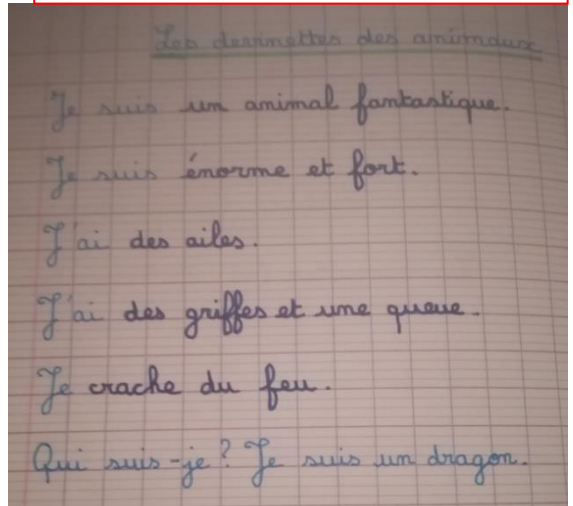 Les devinettes des animaux
Je suis un animal fantastique.
Je suis énorme et fort.
J'ai des ailes.
J'ai des griffes et une queue.
Je crache du feu.
Qui suis-je? Je suis un dragon.